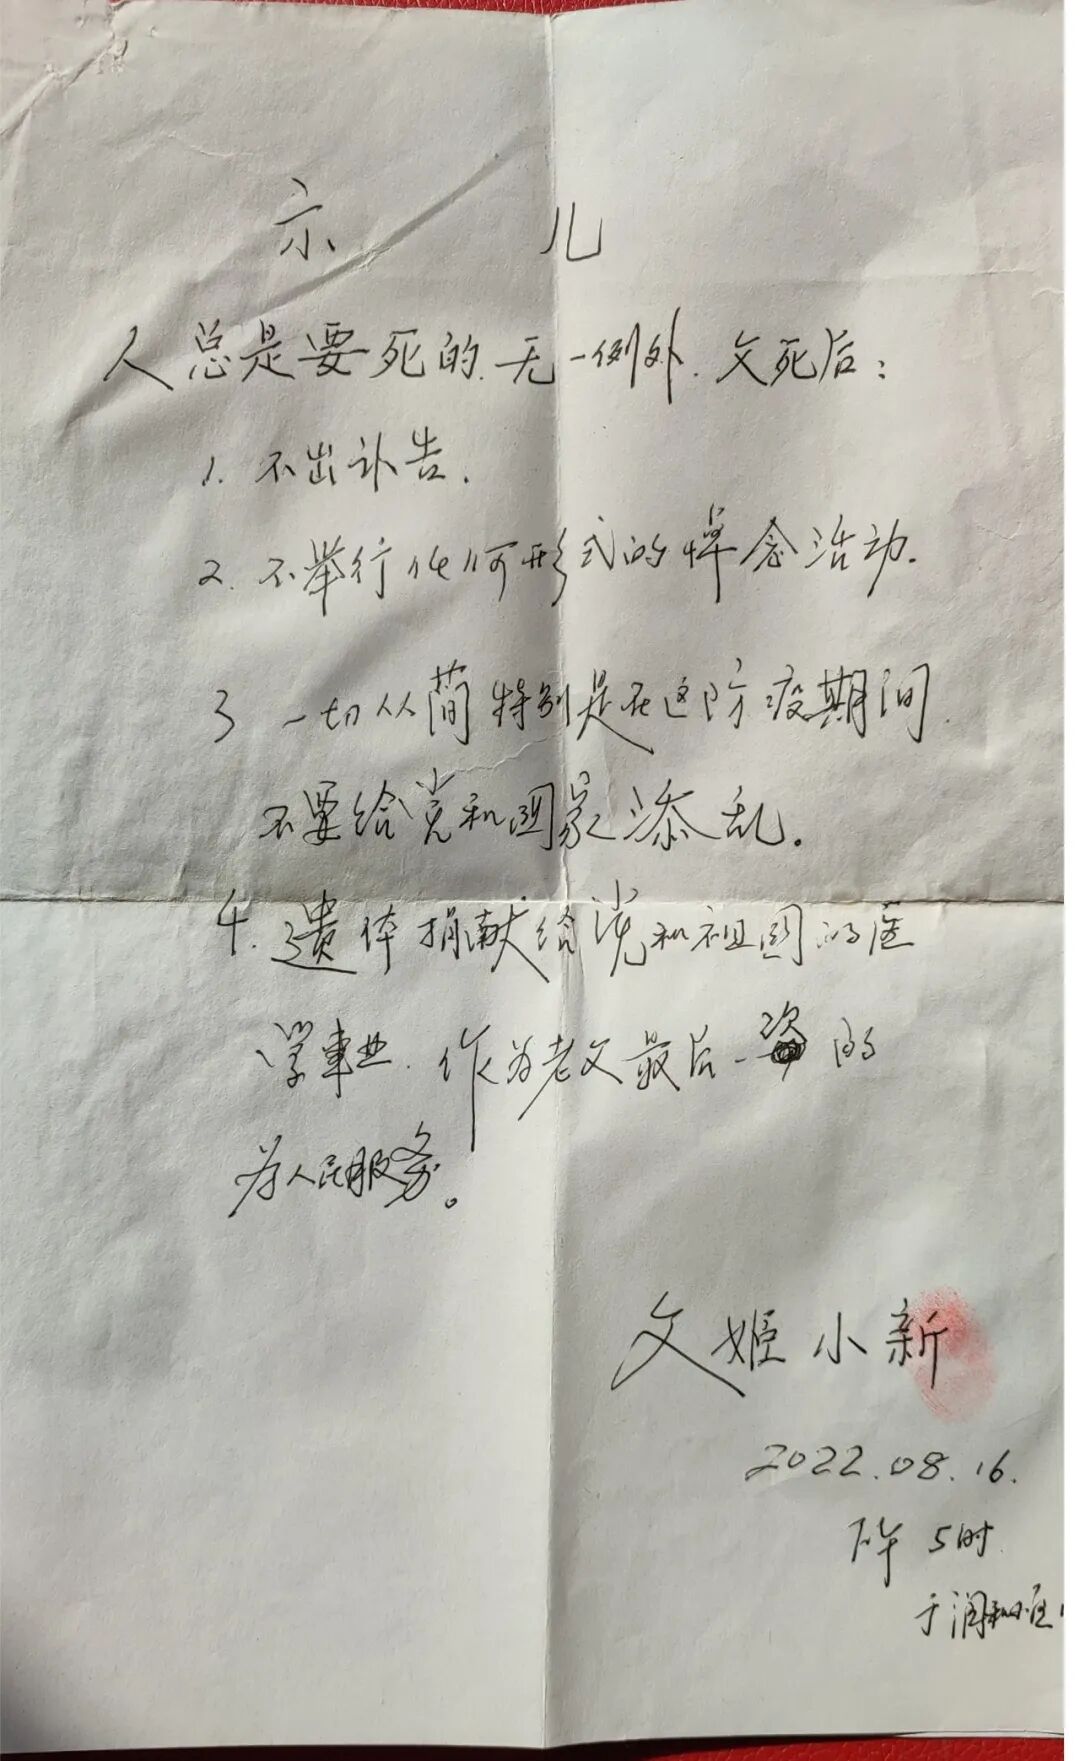 示 儿
人总是要死的.无一例外.文死后:
1.不出讣告.
2.不举行任何形式的悼念活动.
3 一切从简特别是在这防疫期间.
不要给党和国家添乱.
4.遗体捐献给党和祖国的医
学事业.作为老文最后一次的
为人民服务。
文姬小新
2022.08.16.
下午 5时.
于润和小区